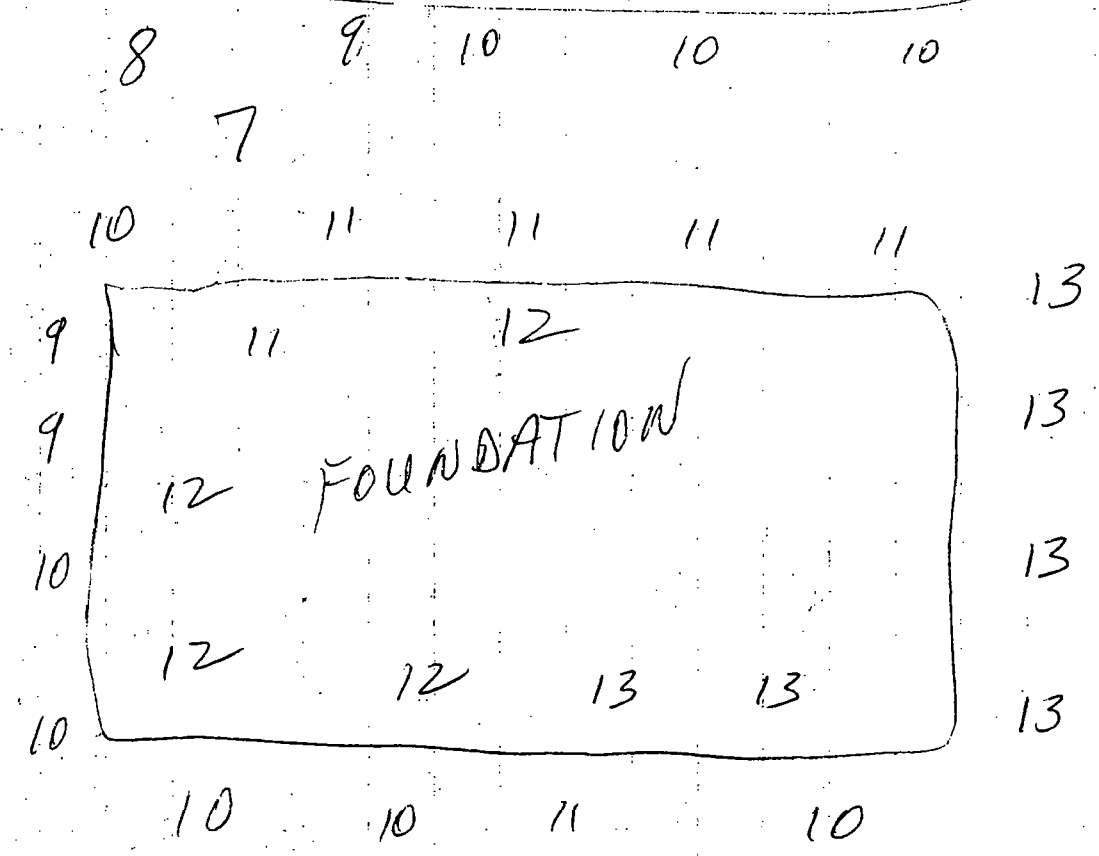 8 9 10 10 10
7
10 11 11 11 11
13
9 11 12
9 13
FOUNDATION
12
10 13
12
12 13 13
10 13
10 10 11 10